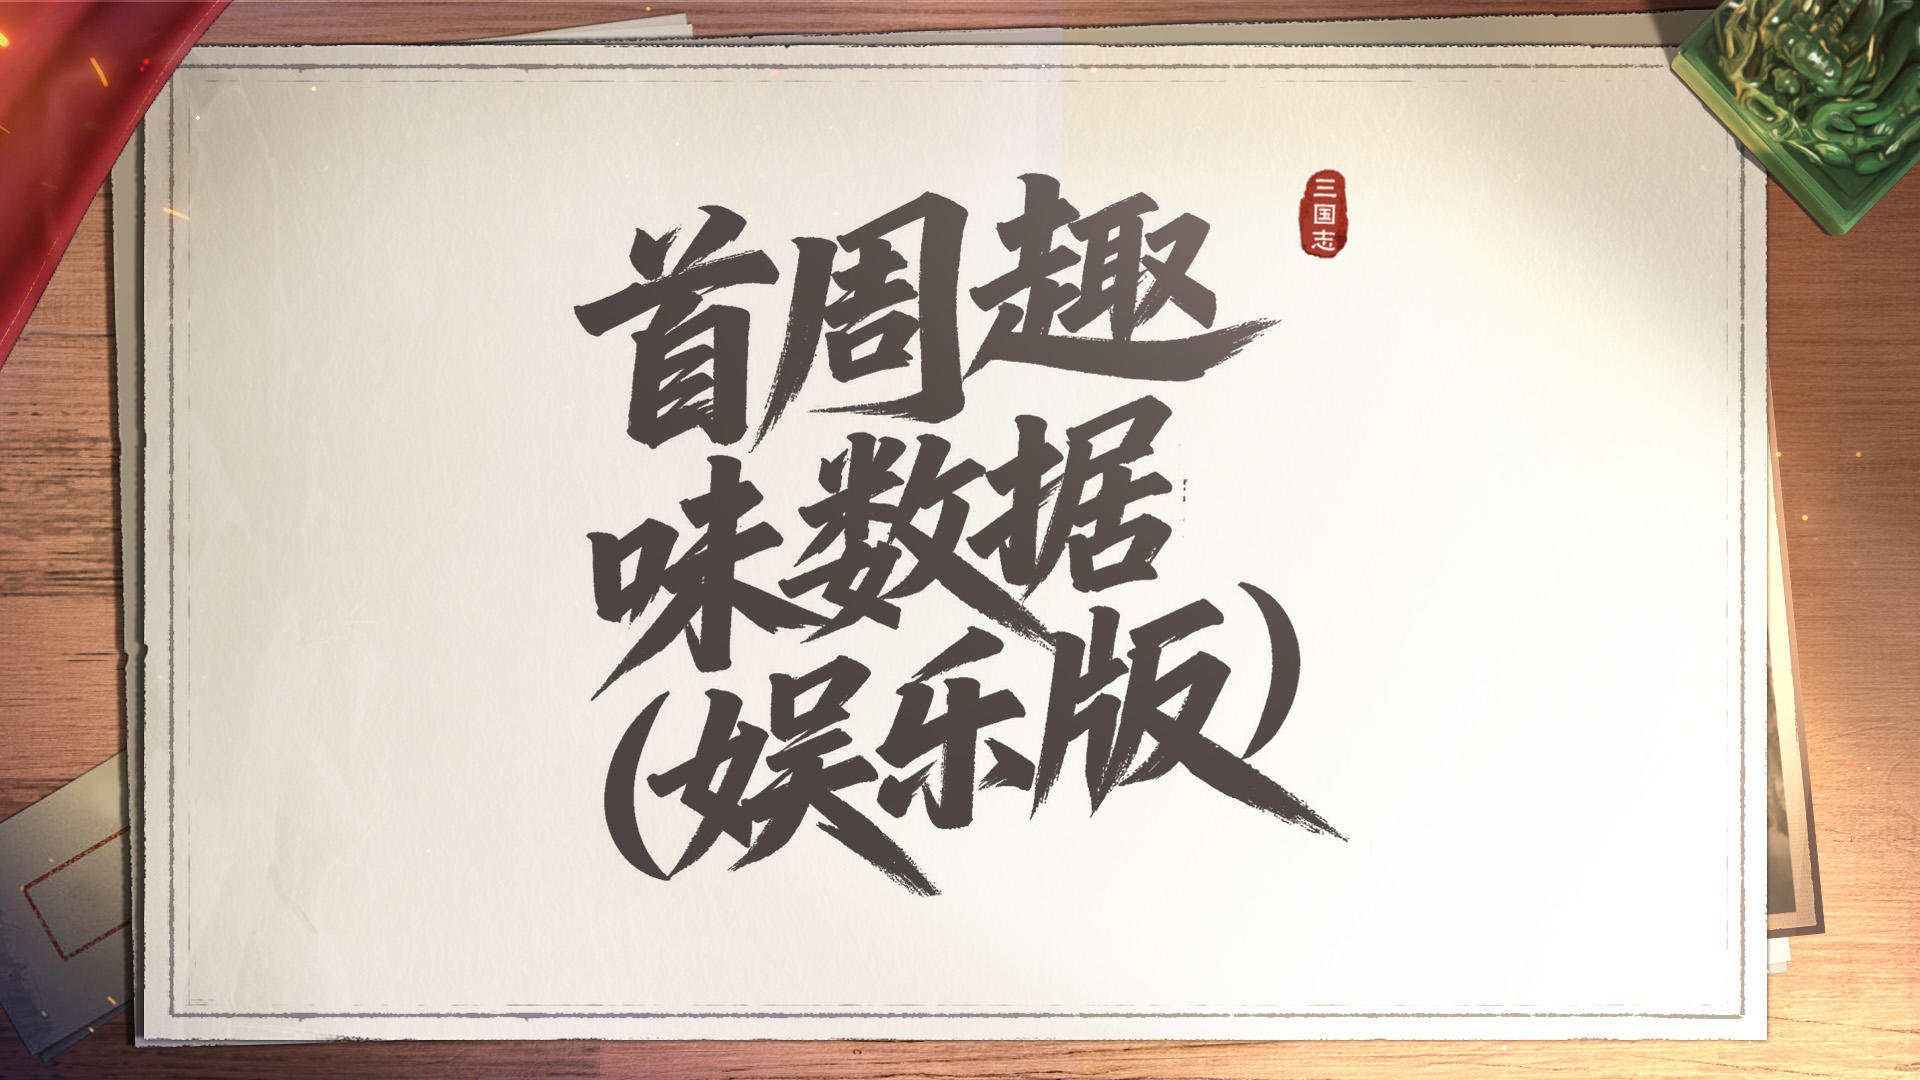 首周趣
味数据
(娱乐版)
三国志